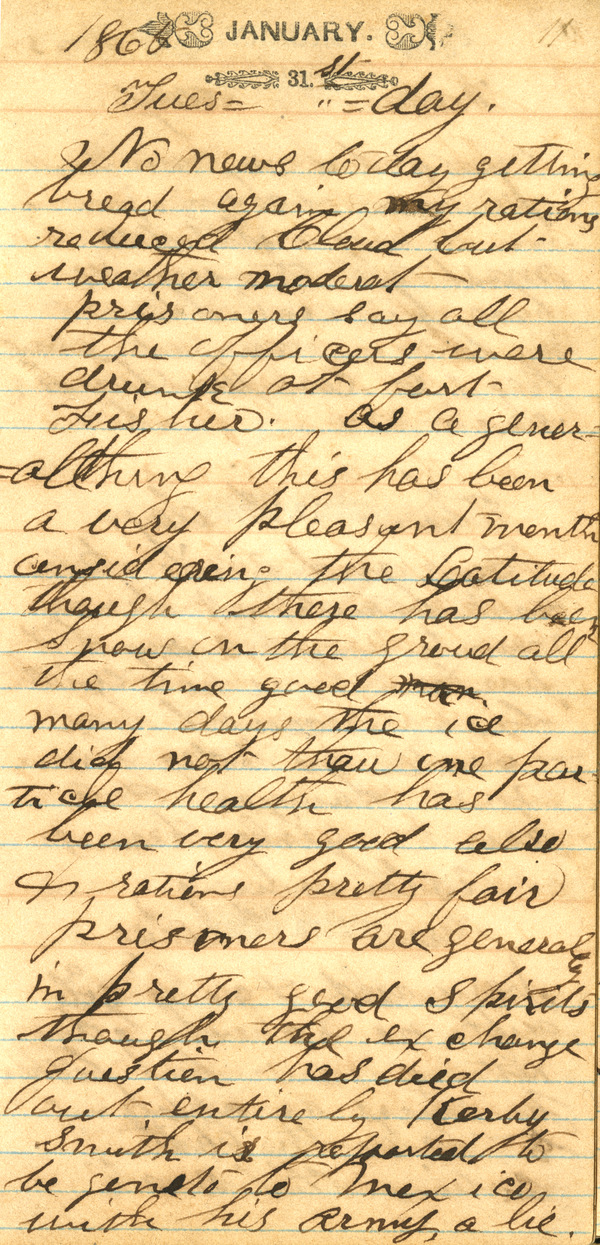 JANUARY.
186
31. st
Tues= "=day.
No news today getting
bread again my rations
reduced Cloud but
weather moderat
prisoners say all
the officers were
drunk at fort
Fisher. as a gener=
=althing this has been
a very pleasant month
considering the Latitude
though there has been
snow on the groud all
the time good
many days the ice
did not thaw one par-
ticle health has
been very good also
& rations pretty fair
prisoners are generaly
in pretty good spirits
though the exchange
question has died
out entirely Kerby
Smith is reported to
be gone to Mexico
with his army, a lie.